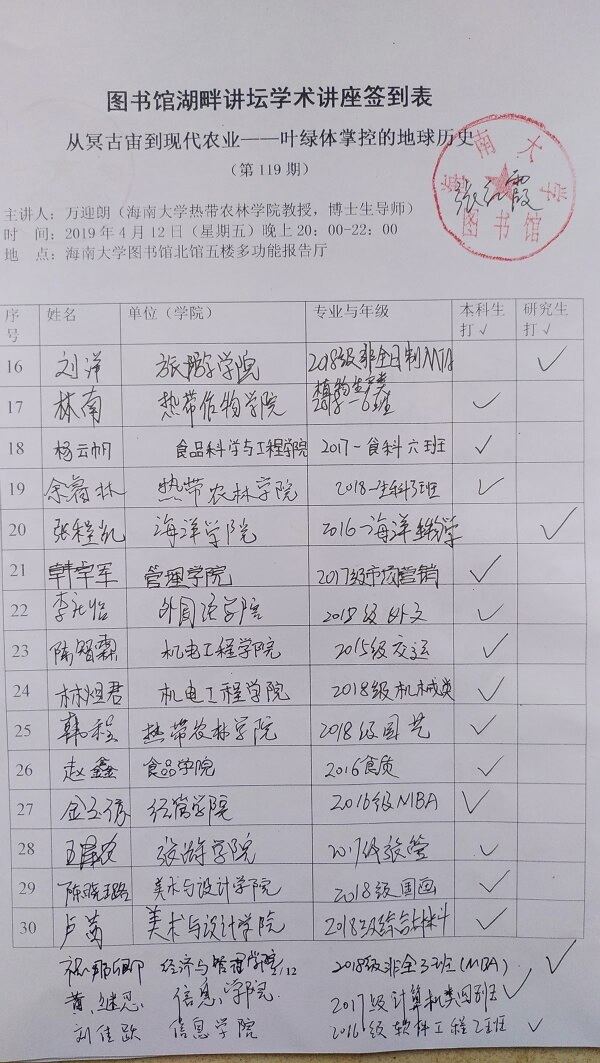 图书馆湖畔讲坛学术讲座签到表
从冥古宙到现代农业——叶绿体掌控的地球历史
（第 119 期）
海南大学
图书馆
张红霞
主讲人：万迎朗（海南大学热带农林学院教授，博士生导师）
时 间：2019 年 4 月 12 日（星期五）晚上 20：00-22：00
地 点：海南大学图书馆北馆五楼多功能报告厅
序号 姓名 单位（学院） 专业与年级 本科生打√ 研究生打√
16 刘洋 旅游学院 2018级非全日制MTA √
17 林南 热带作物学院 植物生产类 √
18 杨云帆 食品科学与工程学院 2017-食科六班 √
19 余 林 热带农林学院 2018-生科3班 √
20 张程凯 海洋学院 2016-海洋生物学 √
21 韩宇军 管理学院 2017级市场营销 √
22 李 怡 外国语学院 2018级外文 √
23 陈智霖 机电工程学院 2015级交运 √
24 林煜君 机电工程学院 2018级机械类 √
25 韩程 热带农林学院 2018级园艺 √
26 赵鑫 食品学院 2016食质 √
27 金玉 经管学院 2016级MBA √
28 旅游学院 2017级旅管 √
29 陈晓璐 美术与设计学院 2018级国画 √
30 卢茜 美术与设计学院 2018级综合材料 √
经济与管理学院 2018级非全3班(MBA) √
黄继忍 信息学院 2017级计算机类四班 √
刘佳跃 信息学院 2016级软件工程2班 √